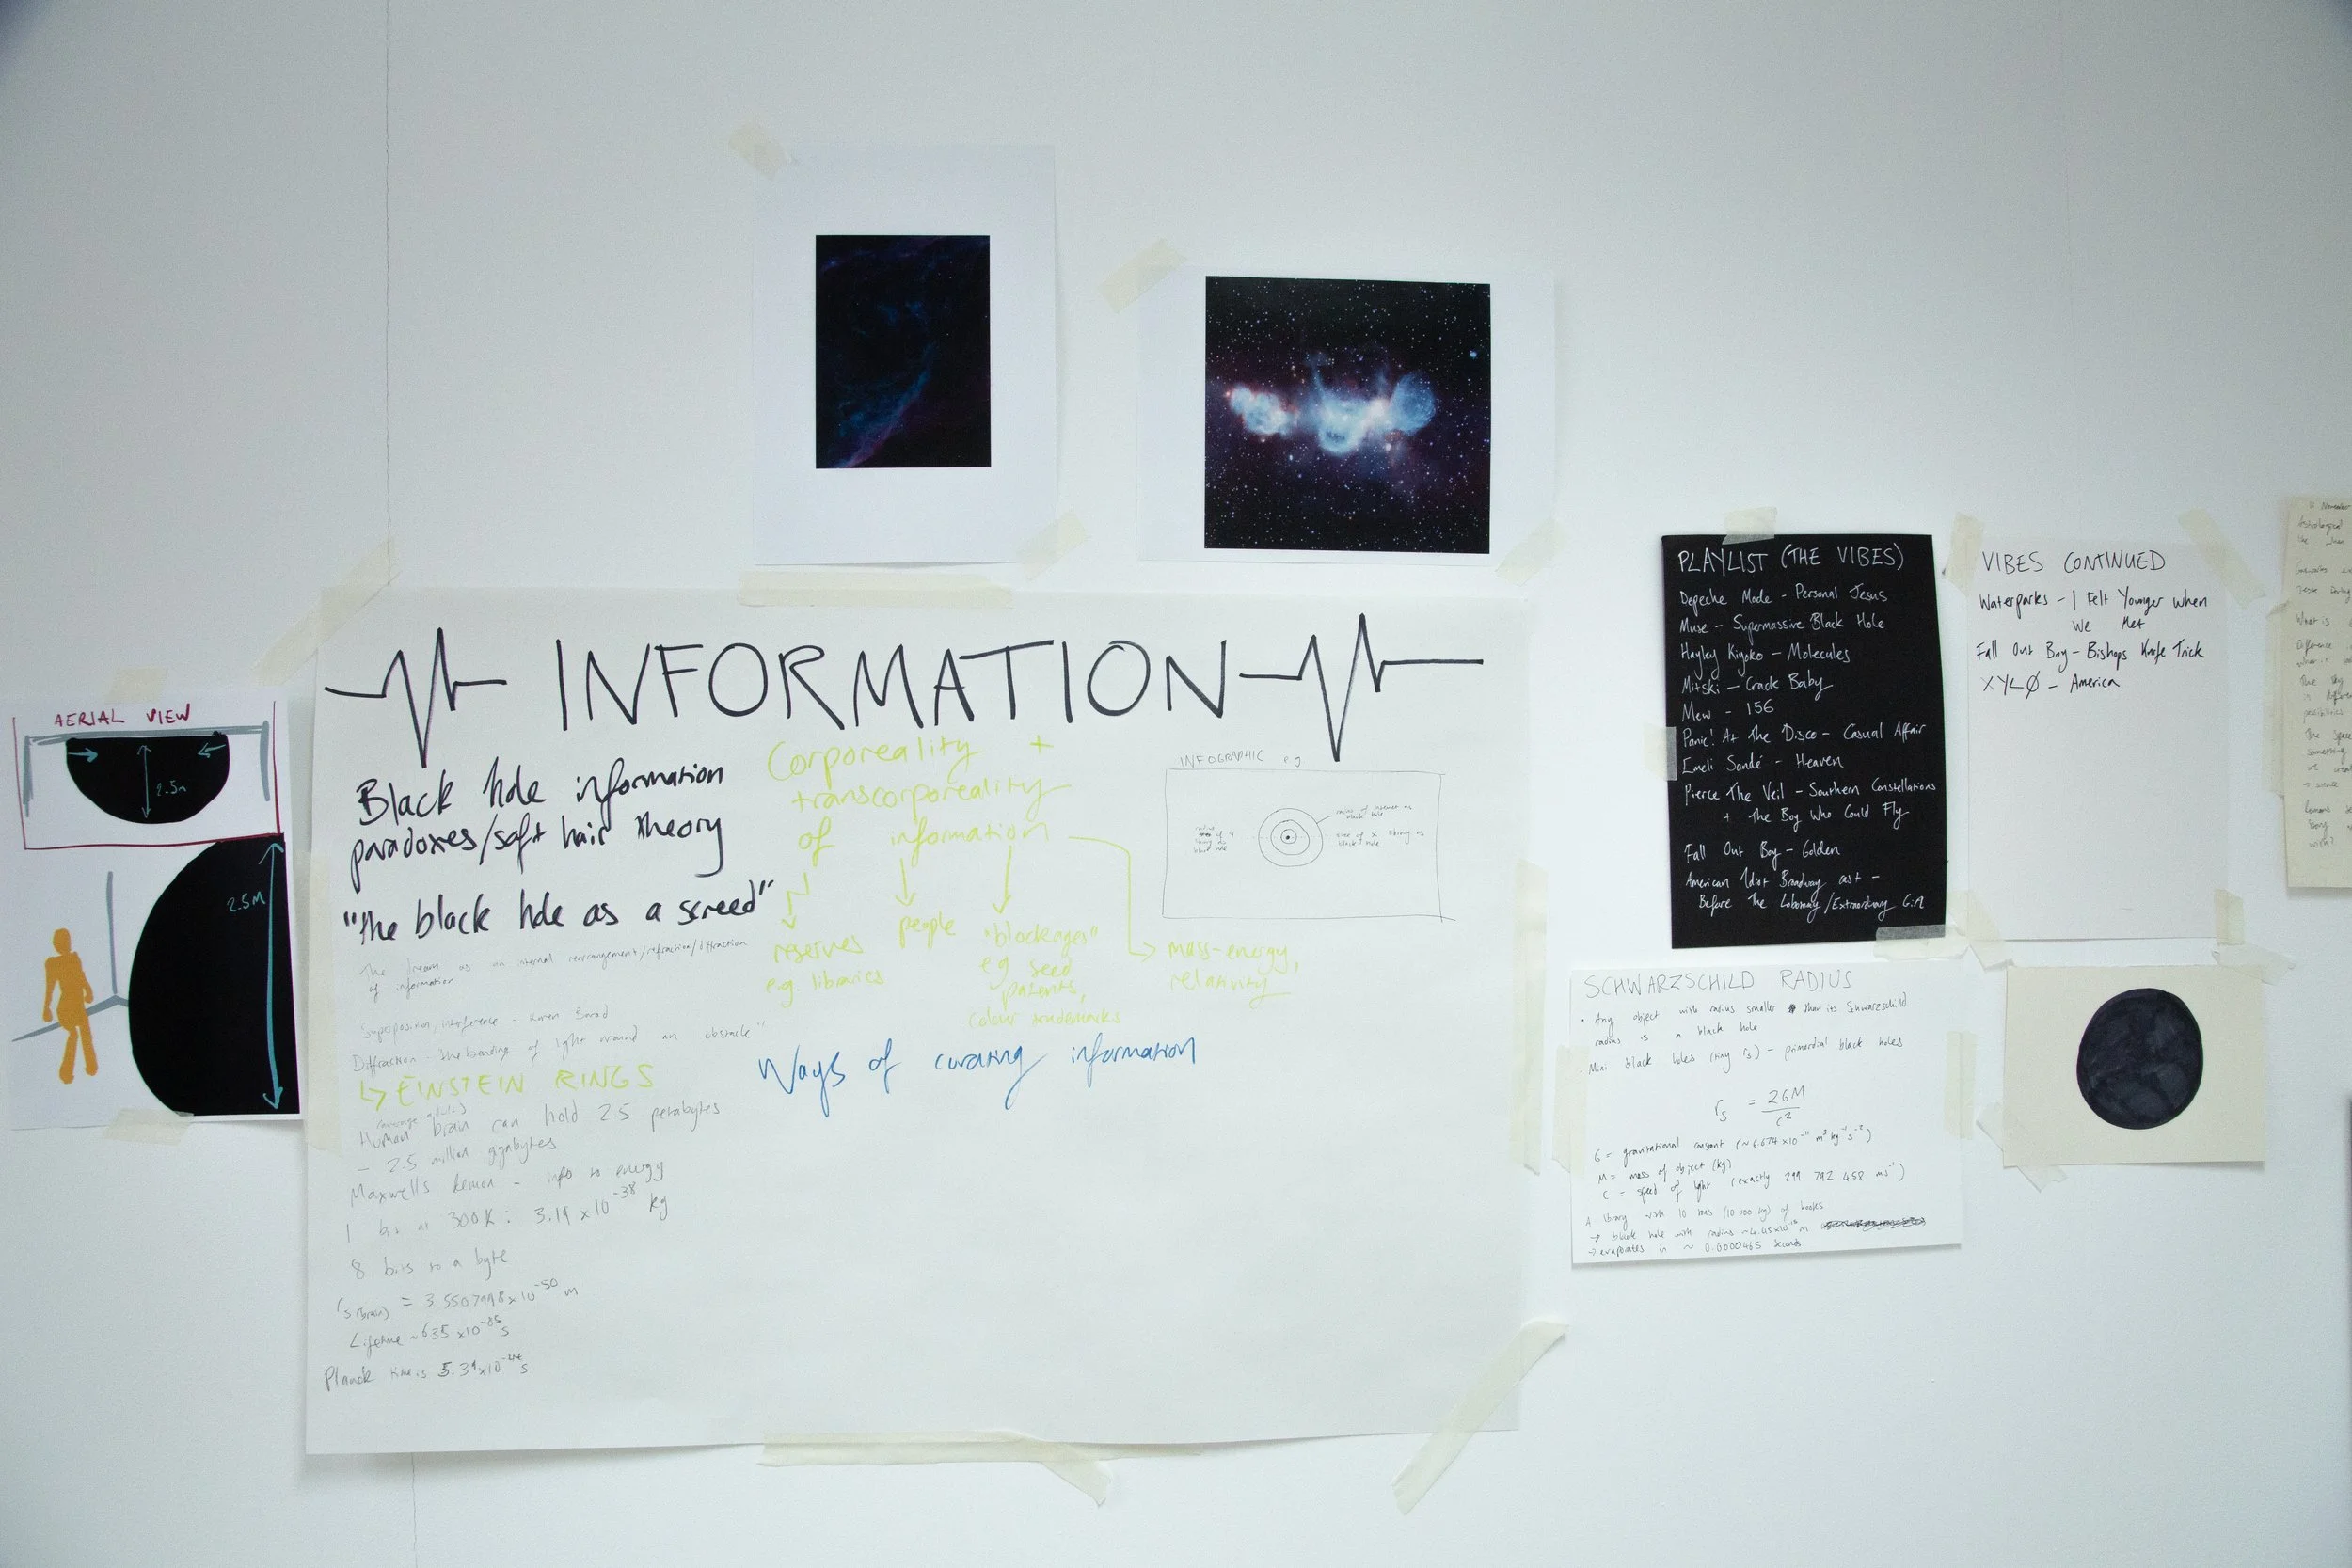 AERIAL VIEW
2.5m
2.5M
INFORMATION
Black hole information
paradoxes/soft hair theory
"the black hole as a screed"
The dream as an internal rearrangement/refraction/diffraction
of information
Superposition, interference - Karen Barad
Diffraction - the bending of light around an obstacle"
EINSTEIN RINGS
(average adult's)
Human brain can hold 2.5 petabytes
- 2.5 million gigabytes
Maxwells demon - info to energy
1 bit at 300K: 3.19 x 10⁻³⁸ kg
8 bits to a byte
rs (brain) = 3.5507998 x 10⁻⁵⁰ m
Lifetime ~ 6.35 x 10⁻⁸⁵ s
Planck time is 5.39 x 10⁻⁴⁴ s
Corporeality +
transcorporeality
of information
reserves
e.g. libraries
people
"blockages"
eg seed
patents,
colour trademarks
mass-energy,
relativity
Ways of curating information
INFOGRAPHIC eg
radius of internet as
black hole
size of x library as
black hole
PLAYLIST (THE VIBES)
Depeche Mode - Personal Jesus
Muse - Supermassive Black Hole
Hayley Kiyoko - Molecules
Mitski - Crack Baby
Mew - 156
Panic! At The Disco - Casual Affair
Emeli Sandé - Heaven
Pierce The Veil - Southern Constellations
+ The Boy Who Could Fly
Fall Out Boy - Golden
American Idiot Broadway cast -
Before The Lobotomy/Extraordinary Girl
VIBES CONTINUED
Waterparks - I Felt Younger When
We Met
Fall Out Boy - Bishops Knife Trick
XYLØ - America
SCHWARZSCHILD RADIUS
• Any object with radius smaller than its Schwarzschild
radius is a black hole
• Mini black holes (tiny rs) - primordial black holes
rs = 2GM
c²
G = gravitational constant (~6.674x10⁻¹¹ m³ kg⁻¹ s⁻²)
M = mass of object (kg)
C = speed of light (exactly 299 792 458 ms⁻¹)
A library with 10 tons (10 000 kg) of books
→ black hole with radius ~ m
→ evaporates in ~ 0.0000465 seconds
11 November
Astrological
the when
What is
Difference
The sky
is
possibilities
The space
something
we